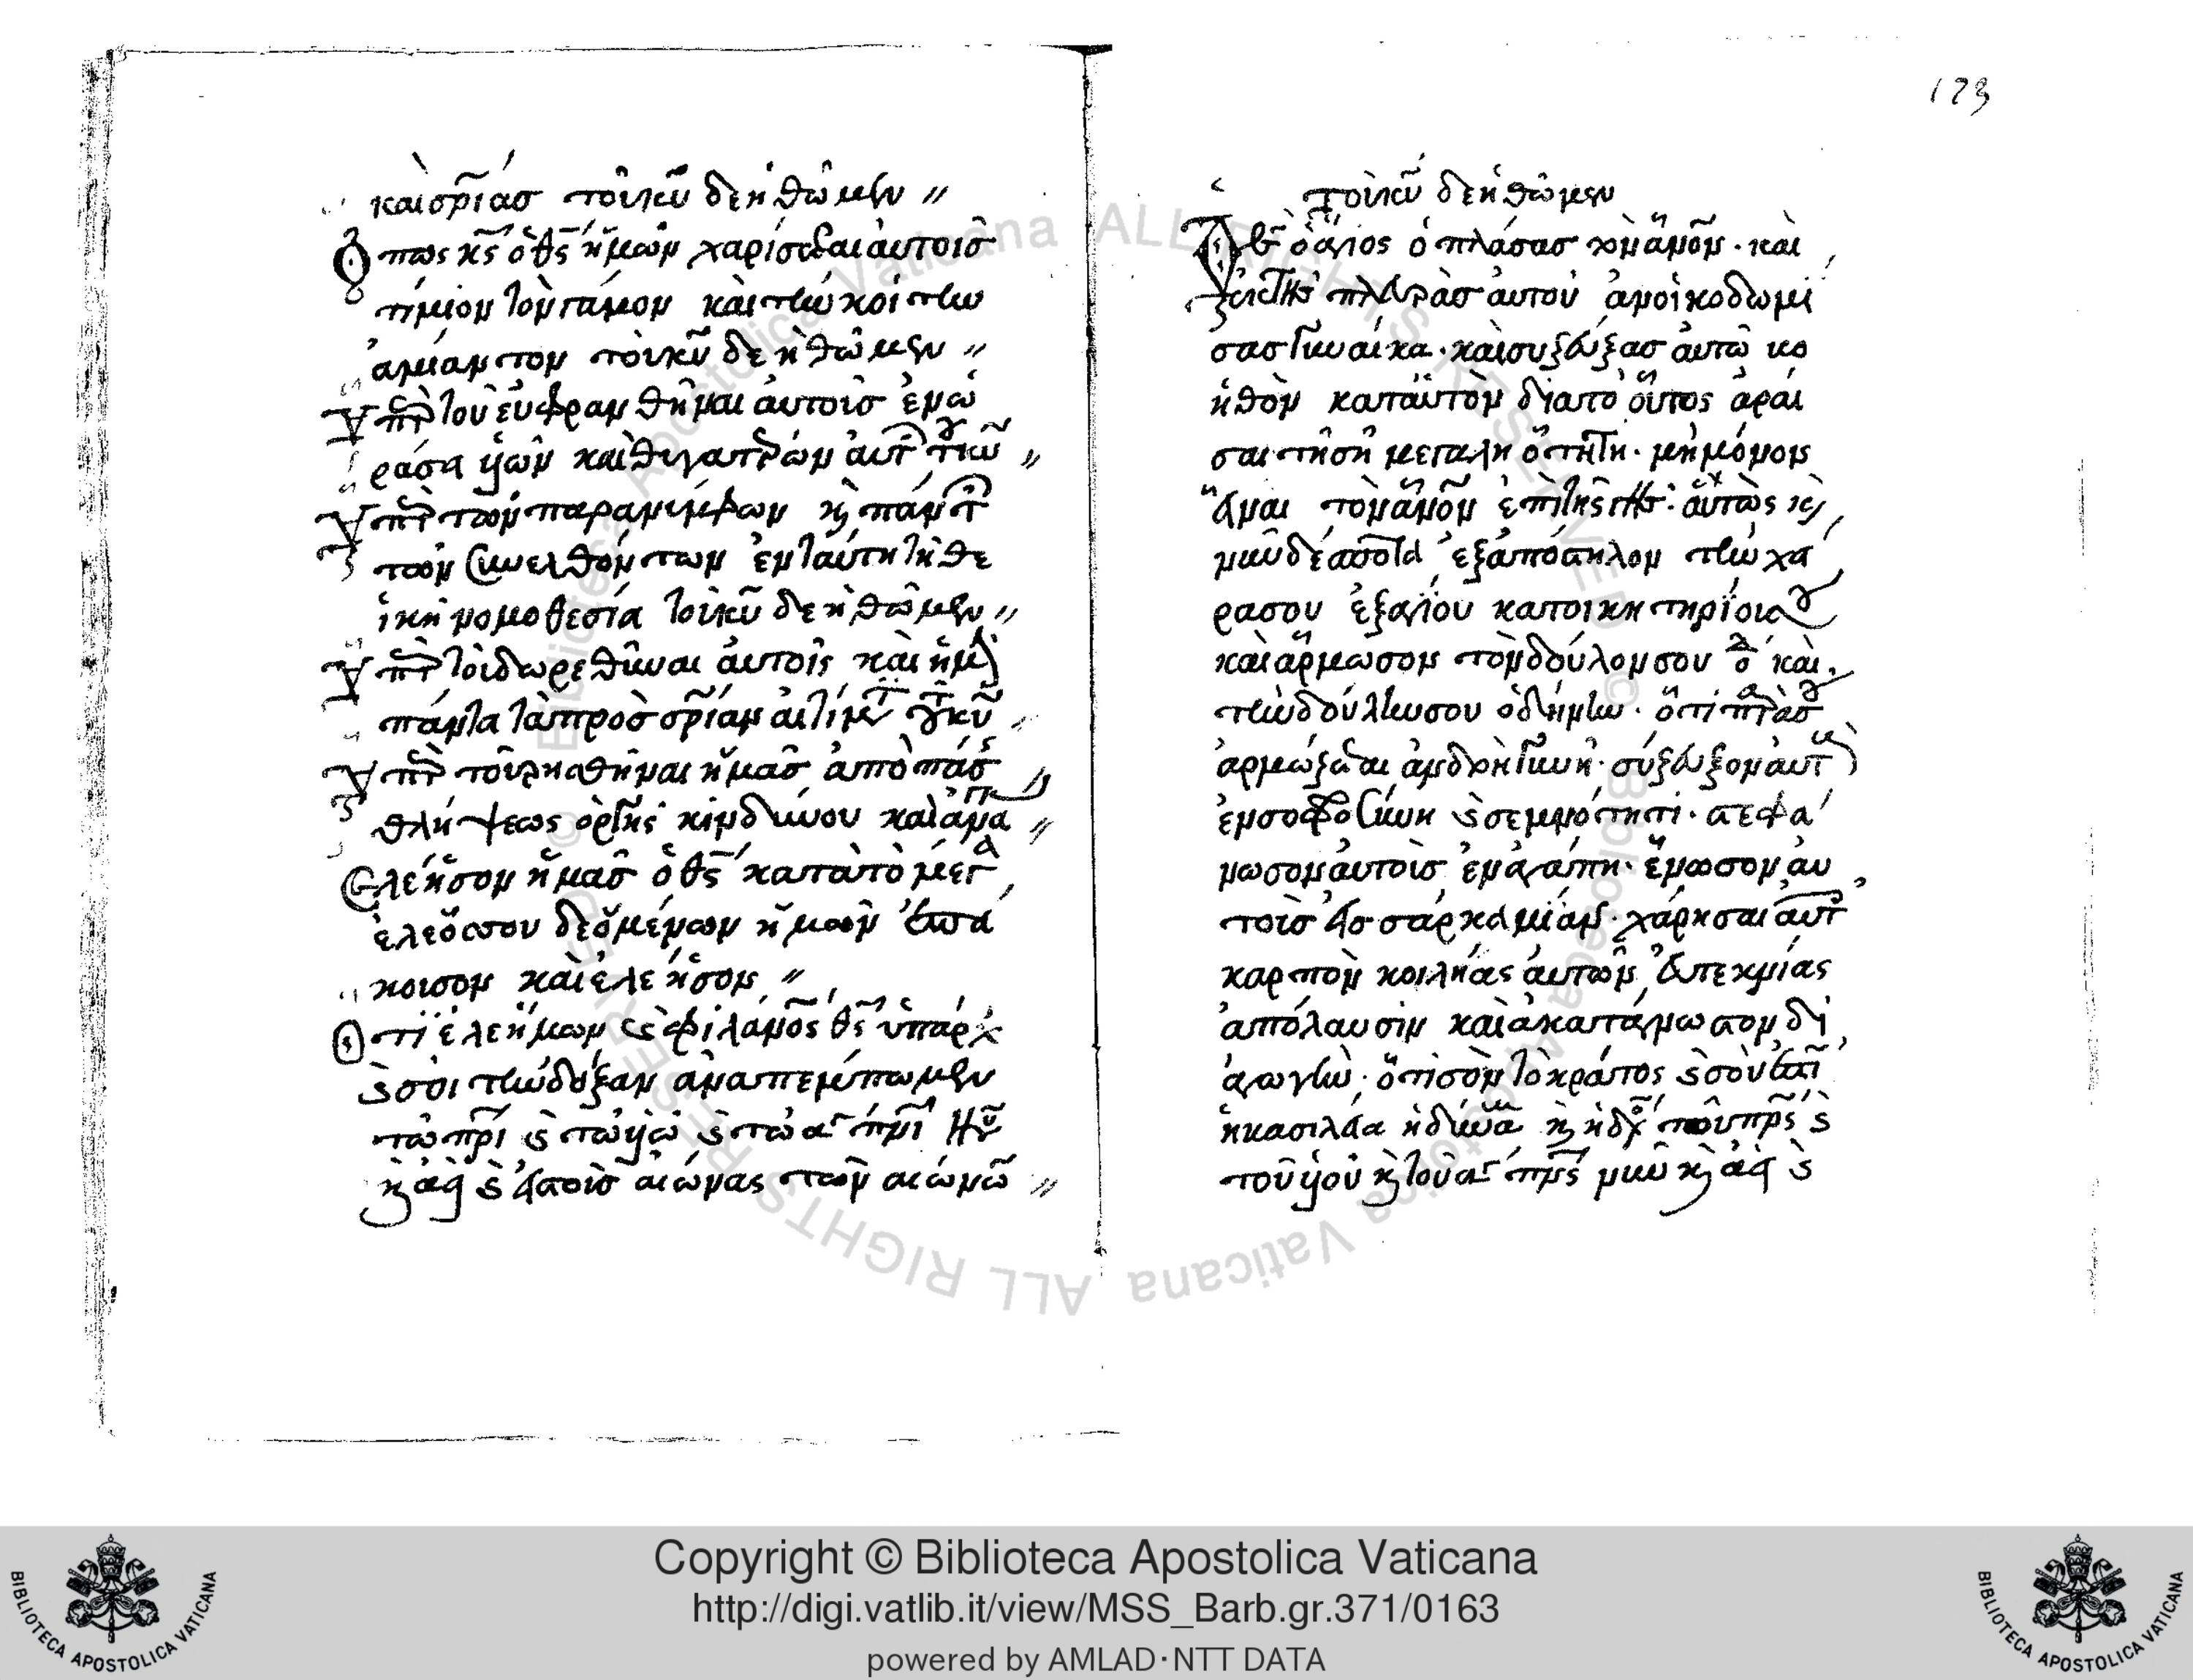 καὶ σρίασ τοῦ κυ δεηθῶμεν //
Οπως κς ὁ θς ἡμῶν χαρίσεται αὐτοισ
τίμιον τὸν γάμον καὶ τὴν κοίτην
ἀμίαντον τοῦ κυ δεηθῶμεν //
Υπὲρ τοῦ εὐφρανθῆναι αὐτοὺσ ἐν ὡ
ράσει υἱῶν καὶ θυγατέρων αὐτ τοῦ κυ //
Υπὲρ τῶν παρανύμφων κὶ πάντ
τῶν συνελθόντων ἐν ταύτη τῆ θε
ϊκῆ νομοθεσία τοῦ κυ δεηθῶμεν //
Υπὲρ τοῦ δωρεθῆναι αὐτοῖς καὶ ἡμῖ
πάντα τὰ πρὸσ σρίαν αἰτίματ τοῦ κυ
Υπὲρ τοῦ ρησθῆναι ἡμᾶσ ἀπὸ πάσ
θλήψεως ὀργῆς κινδύνου καὶ ἀνα
Ελεήσον ἡμᾶσ ὁ θς κατὰ τὸ μέγ
ἐλεός σου δεόμένων ἡμῶν ἐπά
κουσον καὶ ἐλεήσον //
Οτι ἐλεήμων κὲ φιλάνος θς ὑπάρχ
κὲ σοὶ τὴν δόξαν ἀναπεμπωμεν
τῶ πρι κὲ τῶ υἱῶ κὲ τῶ α πνι νυ
κὶ ἀεὶ κὲ εἰς τοὺσ αἰώνας τῶν αἰώνω //
173
τοῦ κυ δεηθῶμεν
ὁ ἅγιος ὁ πλάσασ τὸν ἄνον · καὶ
ἐκ τῆς πλευρᾶσ αὐτοῦ ἀνοἰκοδωμί
σασ γυναίκα · καὶ συζεύξασ αὐτῶ βο
ηθὸν κατ αὐτὸν διὰ τὸ οὕτως ἀραί
σαι τῆ σῆ μεγαληότητι · μὴ μόνον
εἶναι τὸν ἄνον ἐπὶ τῆς γῆς · αὐτὸς κὶ
νῦν δέσποτα ἐξαπόστηλον τὴν χά
ρασου ἐξ αγίου κατοικητηρίου σου
καὶ ἅρμωσον τὸν δούλον σου ὁ δ καὶ
τὴν δούλην σου ὁ δ τήν · ὅτι παρὰ σοῦ
ἁρμώζεται ἀνδρὴ γυνή · σύζευξον αὐτ
ἐν σοφροσύνη κὲ σεμνότητι · στεφά
νωσον αὐτοὺσ ἐν ἀγάπη · ἕνωσον αὐ
τοὺσ εἰσ σάρκα μίαν · χάρησαι αὐτ
καρπὸν κοιλήας αὐτῶν εὐτεκνίας
ἀπόλαυσιν καὶ ἀκαταγνωστον δι
αγωγήν · ὅτι σὸν τὸ κράτος κὲ σοῦ ἐστὶ
ἡ βασιλεία ἡ δύνα κὶ ἡ δόξ τοῦ πρς κὲ
τοῦ υἱοῦ κὶ τοῦ α πνς νῦν κὶ ἀεὶ κὲ
Copyright © Biblioteca Apostolica Vaticana
http://digi.vatlib.it/view/MSS_Barb.gr.371/0163
powered by AMLAD·NTT DATA
BIBLIOTECA APOSTOLICA VATICANA
BIBLIOTECA APOSTOLICA VATICANA